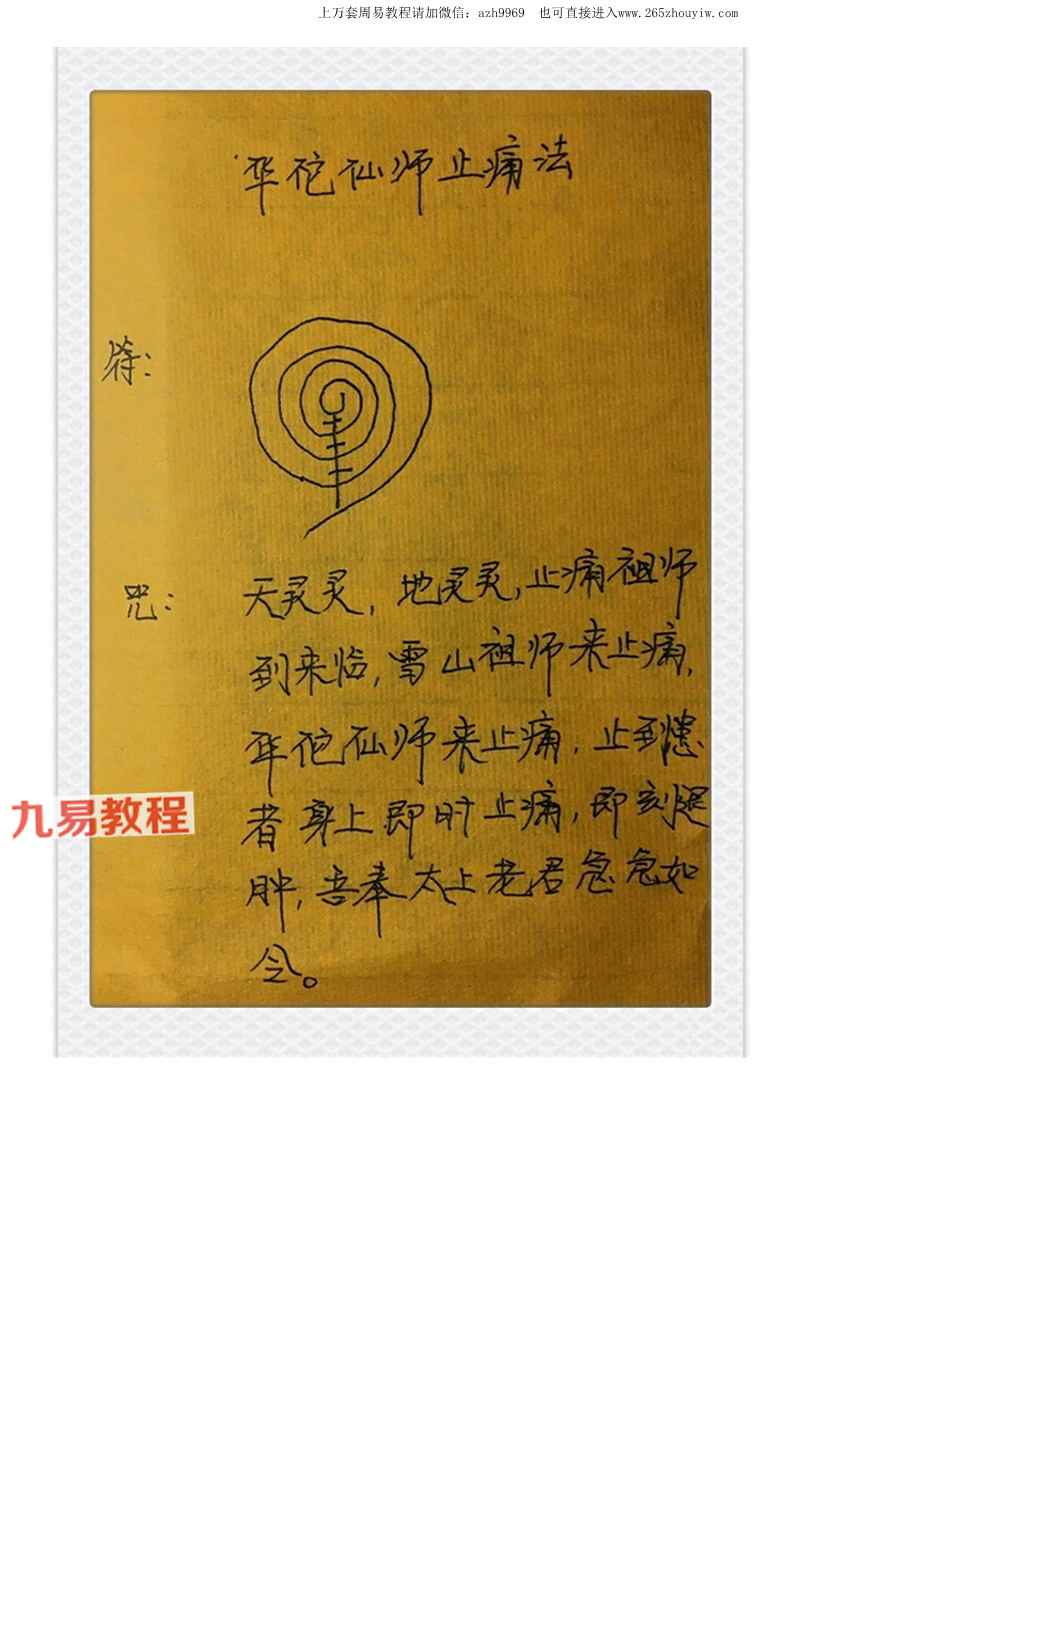 上万套周易教程请加微信：azh9969 也可直接进入www.265zhouyiw.com
华佗仙师止痛法
符：
咒：
天灵灵，地灵灵，止痛祖师
到来临，雪山祖师来止痛，
华佗仙师来止痛，止到患
者身上即时止痛，即刻退
肿，吾奉太上老君急急如
令。
九易教程